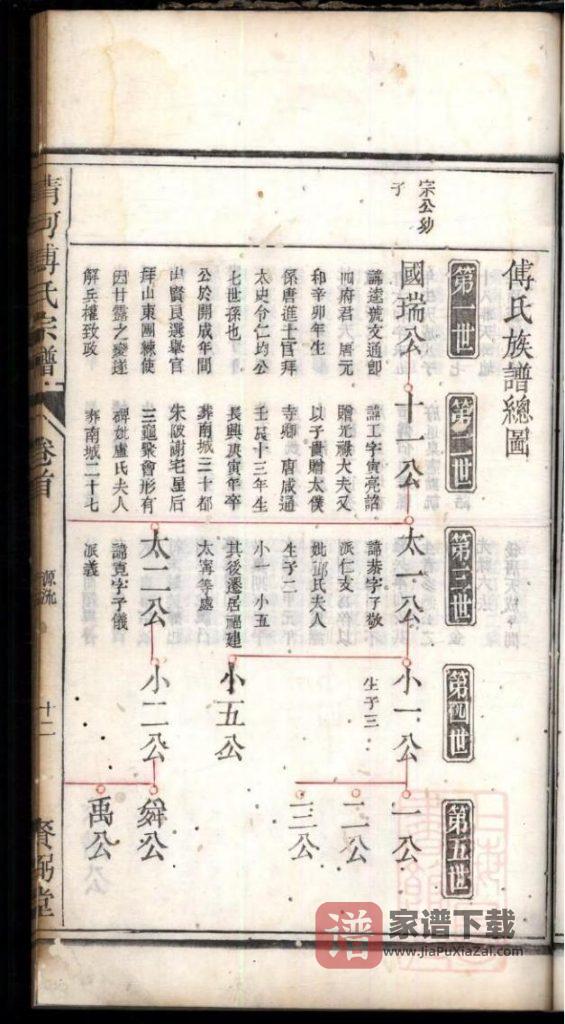 傅氏族譜總圖
宗公幼
子
第一世
第二世
第三世
第四世
第五世
國瑞公
諱逵號文通卽
河府君 唐元
和辛卯年生
係唐進士官拜
太史令仁均公
七世孫也
公於開成年間
由賢良選舉官
拜山東團練使
因甘露之變遂
解兵權致政
十一公
諱工字寅亮誥
贈光祿大夫又
以子貴贈太僕
寺卿 唐咸通
壬辰十三年生
長興庚寅年卒
葬南城三十都
朱陂謝宅星后
三龜聚會形有
碑妣盧氏夫人
葬南城二十七
太一公
諱恭字子敬
派仁支
妣邱氏夫人
生子二
小一 小五
其後遷居福建
太甯等處
太二公
諱寬字子儀
派義
小一公
生子三
小五公
小二公
一公
二公
三公
舜公
禹公
清河傅氏宗譜
卷首
源流
十二
賚弼堂
譜
家谱下载
www.jiaPuXiaZai.com